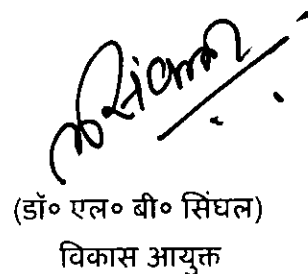 (डॉ० एल० बी० सिंघल)
विकास आयुक्त